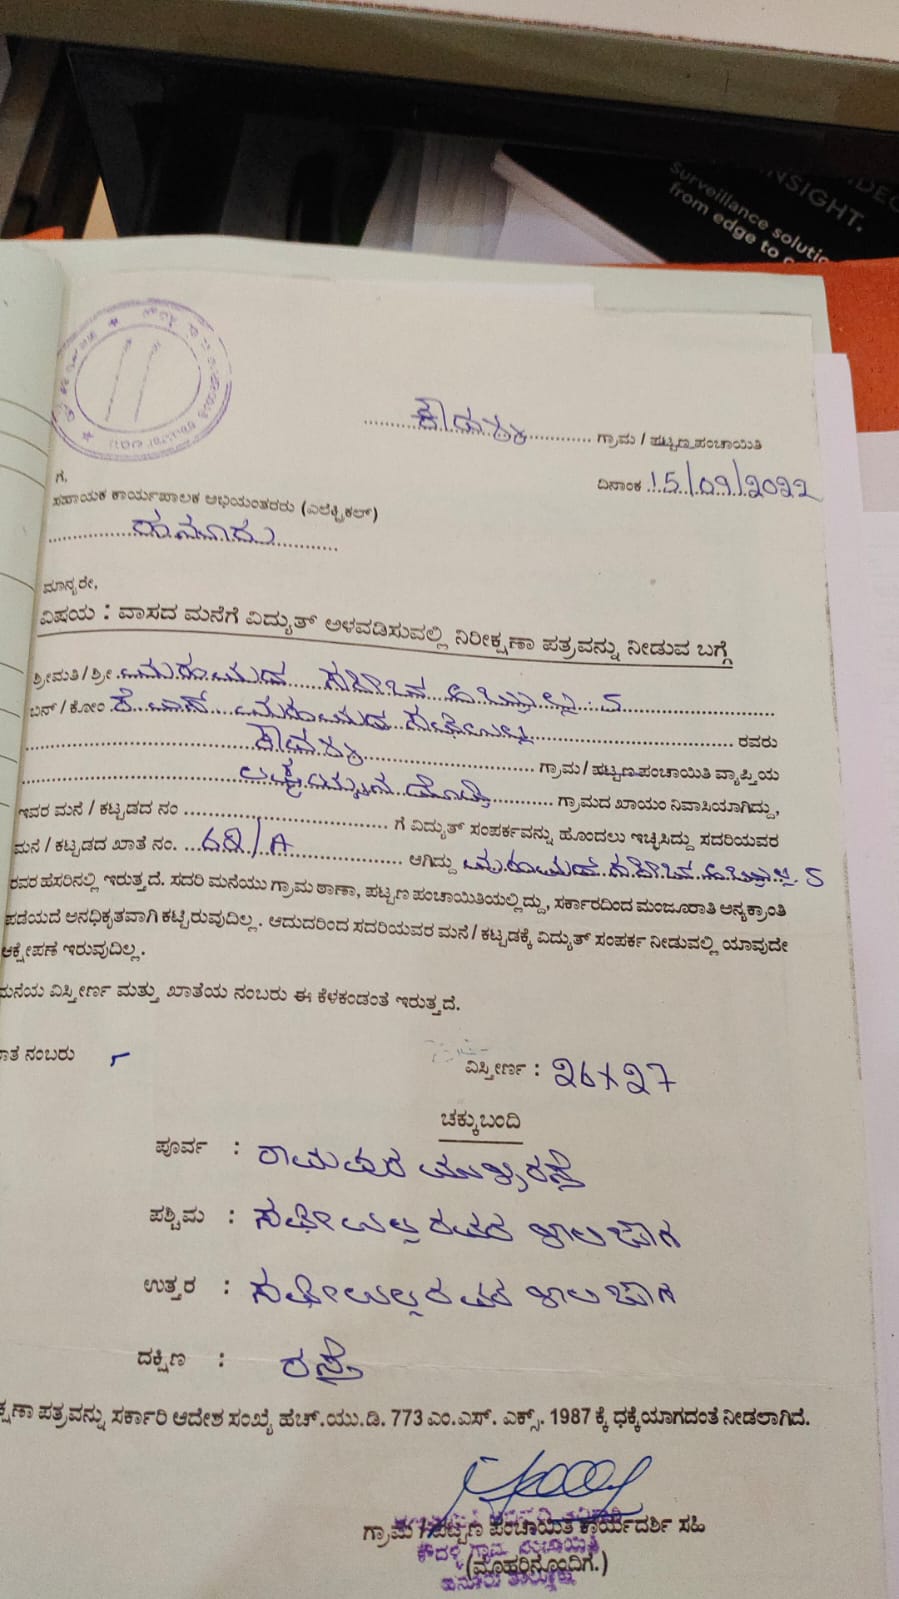 INSIGHT.
Surveillance solutio
from edge to
ಕೌದಳ್ಳಿ ಗ್ರಾಮ / ಪಟ್ಟಣ ಪಂಚಾಯಿತಿ
ದಿನಾಂಕ 15/09/2022
ಗೆ,
ಸಹಾಯಕ ಕಾರ್ಯಪಾಲಕ ಅಭಿಯಂತರರು (ಎಲೆಕ್ಟ್ರಿಕಲ್)
ಹನೂರು
ಮಾನ್ಯರೇ,
ವಿಷಯ : ವಾಸದ ಮನೆಗೆ ವಿದ್ಯುತ್ ಅಳವಡಿಸುವಲ್ಲಿ ನಿರೀಕ್ಷಣಾ ಪತ್ರವನ್ನು ನೀಡುವ ಬಗ್ಗೆ
ಶ್ರೀಮತಿ / ಶ್ರೀ S
ಬಿನ್ / ಕೋಂ ರವರು
ಕೌದಳ್ಳಿ ಗ್ರಾಮ / ಪಟ್ಟಣ ಪಂಚಾಯಿತಿ ವ್ಯಾಪ್ತಿಯ
ಗ್ರಾಮದ ಖಾಯಂ ನಿವಾಸಿಯಾಗಿದ್ದು,
ಇವರ ಮನೆ / ಕಟ್ಟಡದ ನಂ ಗೆ ವಿದ್ಯುತ್ ಸಂಪರ್ಕವನ್ನು ಹೊಂದಲು ಇಚ್ಛಿಸಿದ್ದು ಸದರಿಯವರ
ಮನೆ / ಕಟ್ಟಡದ ಖಾತೆ ನಂ. ಆಗಿದ್ದು S
ರವರ ಹೆಸರಿನಲ್ಲಿ ಇರುತ್ತದೆ. ಸದರಿ ಮನೆಯು ಗ್ರಾಮ ಠಾಣಾ, ಪಟ್ಟಣ ಪಂಚಾಯಿತಿಯಲ್ಲಿದ್ದು, ಸರ್ಕಾರದಿಂದ ಮಂಜೂರಾತಿ ಅನ್ಯಕ್ರಾಂತಿ
ಪಡೆಯದೆ ಅನಧಿಕೃತವಾಗಿ ಕಟ್ಟಿರುವುದಿಲ್ಲ. ಆದುದರಿಂದ ಸದರಿಯವರ ಮನೆ / ಕಟ್ಟಡಕ್ಕೆ ವಿದ್ಯುತ್ ಸಂಪರ್ಕ ನೀಡುವಲ್ಲಿ ಯಾವುದೇ
ಆಕ್ಷೇಪಣೆ ಇರುವುದಿಲ್ಲ.
ಮನೆಯ ವಿಸ್ತೀರ್ಣ ಮತ್ತು ಖಾತೆಯ ನಂಬರು ಈ ಕೆಳಕಂಡಂತೆ ಇರುತ್ತದೆ.
ಾತೆ ನಂಬರು ವಿಸ್ತೀರ್ಣ : 26X27
ಚಕ್ಕುಬಂದಿ
ಪೂರ್ವ : ರಾಮಪುರ ಮುಖ್ಯರಸ್ತೆ
ಪಶ್ಚಿಮ : ರವರ ಖಾಲಿ ಜಾಗ
ಉತ್ತರ : ರವರ ಖಾಲಿ ಜಾಗ
ದಕ್ಷಿಣ : ರಸ್ತೆ
ಕ್ಷಣಾ ಪತ್ರವನ್ನು ಸರ್ಕಾರಿ ಆದೇಶ ಸಂಖ್ಯೆ ಹೆಚ್.ಯು.ಡಿ. 773 ಎಂ.ಎಸ್. ಎಕ್ಸ್. 1987 ಕ್ಕೆ ಧಕ್ಕೆಯಾಗದಂತೆ ನೀಡಲಾಗಿದೆ.
ಗ್ರಾಮ / ಪಟ್ಟಣ ಪಂಚಾಯಿತಿ ಕಾರ್ಯದರ್ಶಿ ಸಹಿ
ಕೌದಳ್ಳಿ ಗ್ರಾಮ ಪಂಚಾಯಿತಿ
(ಮೊಹರಿನೊಂದಿಗೆ.)
ಹನೂರು ತಾಲ್ಲೂಕು